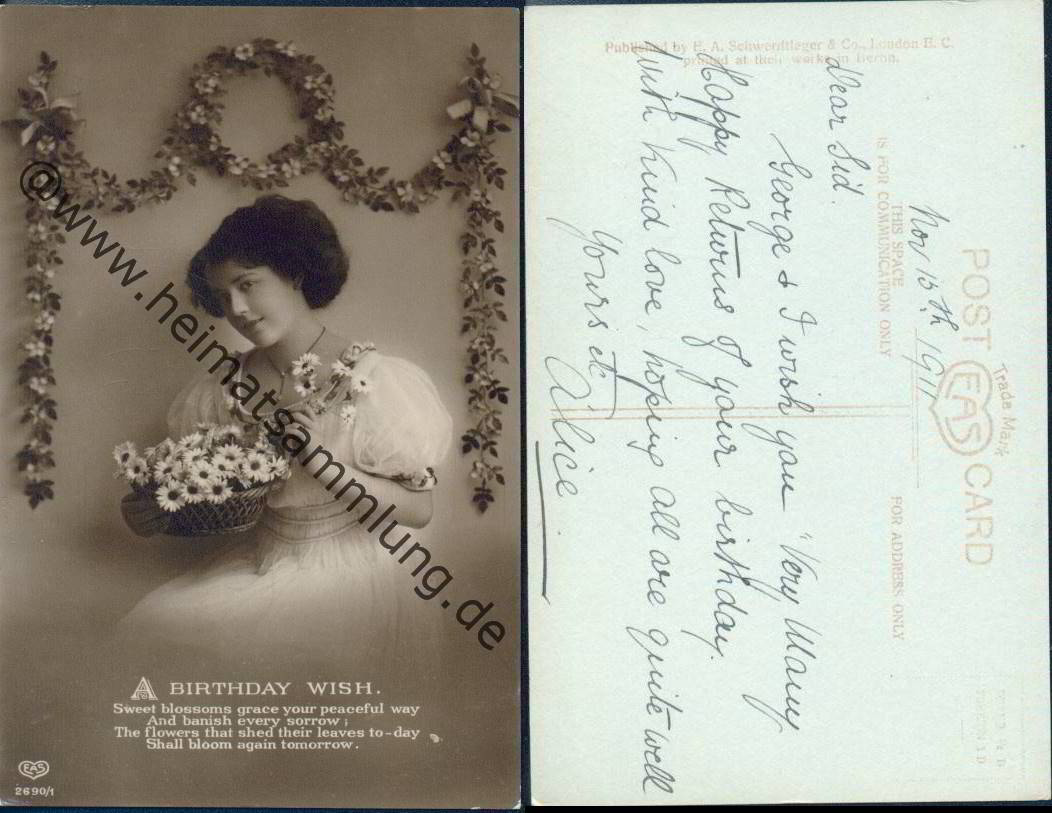 @www.heimatsammlung.de
A BIRTHDAY WISH.
Sweet blossoms grace your peaceful way
And banish every sorrow;
The flowers that shed their leaves to-day
Shall bloom again tomorrow.
EAS
2690/1
Published by E. A. Schwerdtfeger & Co., London E. C.
printed at their works in Berlin.
POST CARD
Trade Mark
EAS
THIS SPACE
IS FOR COMMUNICATION ONLY
FOR ADDRESS ONLY
Nov 15th 1911
Dear Sid.
George & I wish you "Very Many
Happy Returns of your birthday.
With kind love, hoping all are quite well
Yours etc
Alice.